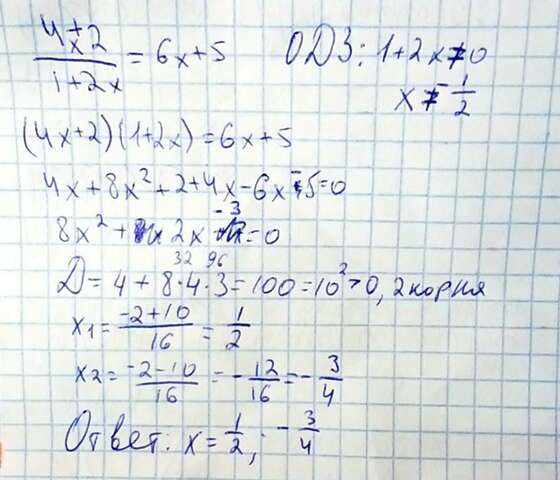 (4x+2)/(1+2x) = 6x+5 ОДЗ: 1+2x≠0
x ≠ -1/2
(4x+2)(1+2x)=6x+5
4x+8x²+2+4x-6x-5=0
8x²+2x-3=0
32 96
D=4+8·4·3=100=10²>0, 2 корня
x₁=(-2+10)/16=1/2
x₂=(-2-10)/16=-12/16=-3/4
Ответ: x=1/2; -3/4